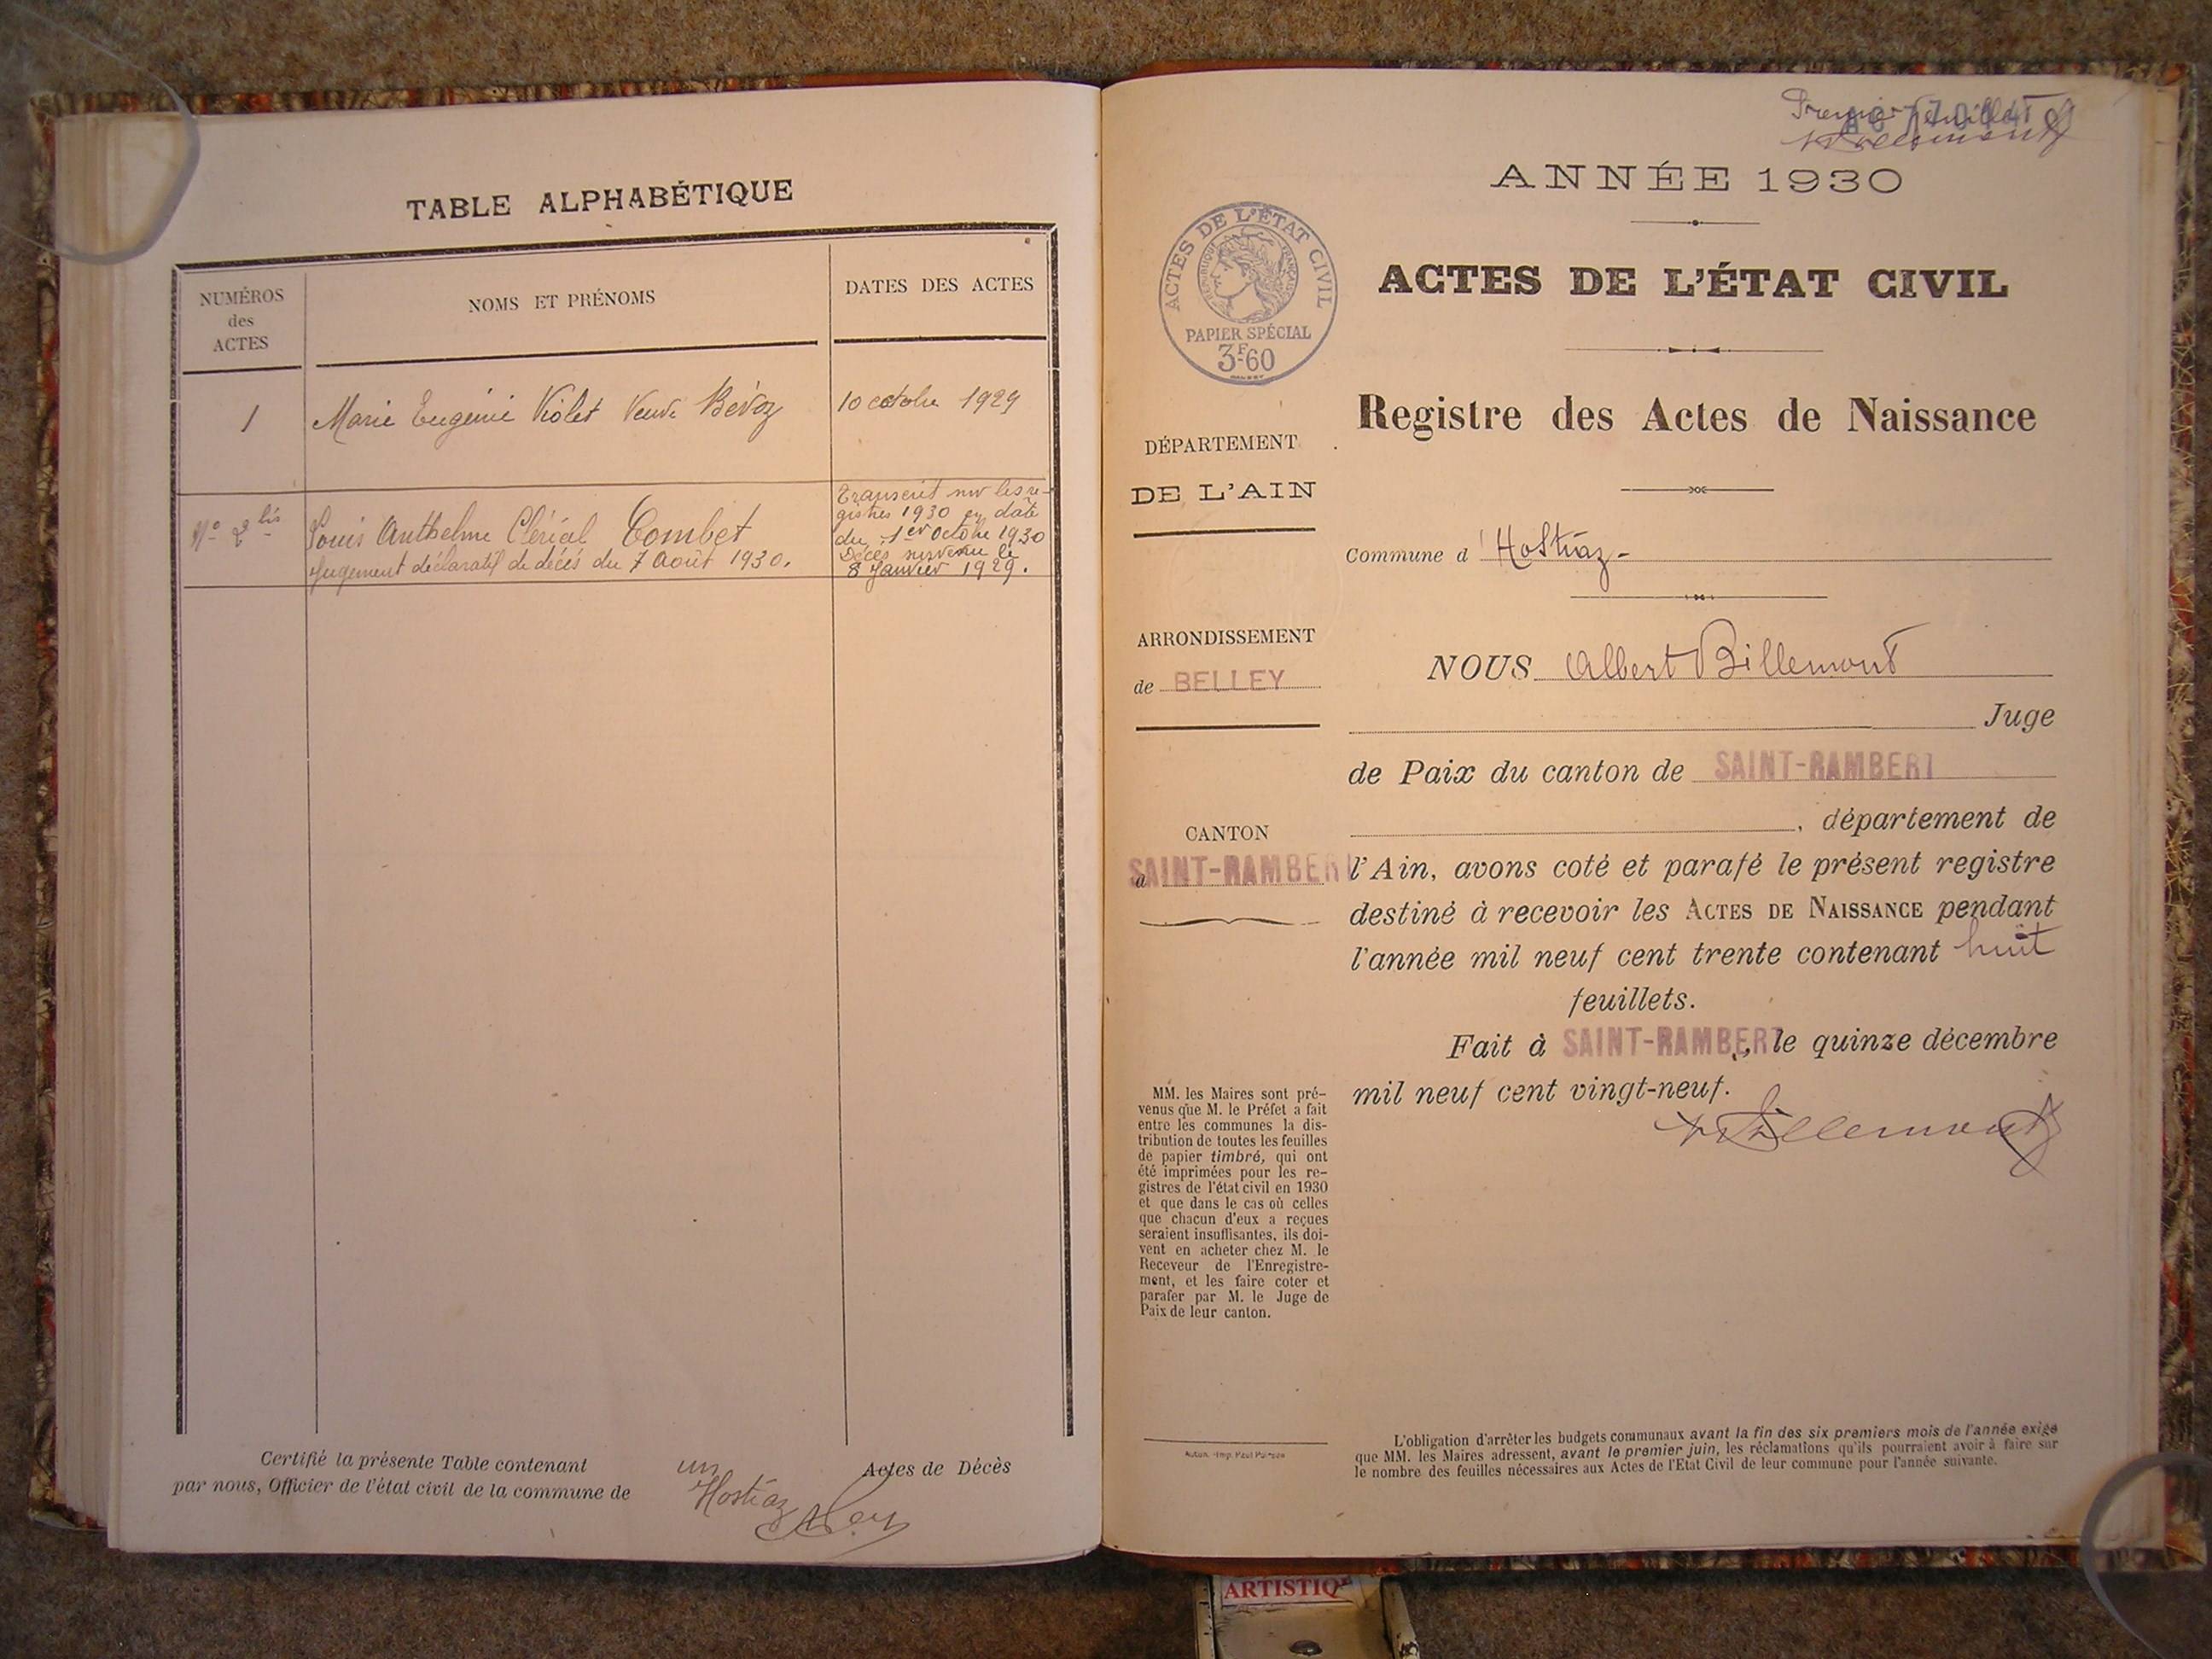 TABLE ALPHABÉTIQUE
NUMÉROS
des
ACTES
NOMS ET PRÉNOMS
DATES DES ACTES
1
Marie Eugénie Violet Veuve Bévoz
10 octobre 1929
N° 2 bis
Louis Anthelme Clérial Combet
Jugement déclaratif de décés du 7 Août 1930.
Transcrit sur les re-
gistres 1930 en date
du 1er octobre 1930
Décès survenu le
8 Janvier 1929.
Certifié la présente Table contenant un Actes de Décès
par nous, Officier de l'état civil de la commune de Hostiaz
Premier feuillet
ANNÉE 1930
ACTES DE L'ÉTAT CIVIL
RÉPUBLIQUE FRANÇAISE
PAPIER SPÉCIAL
3F60
ACTES DE L'ÉTAT CIVIL
Registre des Actes de Naissance
DÉPARTEMENT
DE L'AIN
ARRONDISSEMENT
de BELLEY
CANTON
d SAINT-RAMBERT
MM. les Maires sont pré-
venus que M. le Préfet a fait
entre les communes la dis-
tribution de toutes les feuilles
de papier timbré, qui ont
été imprimées pour les re-
gistres de l'état civil en 1930
et que dans le cas où celles
que chacun d'eux a reçues
seraient insuffisantes, ils doi-
vent en acheter chez M. le
Receveur de l'Enregistre-
ment, et les faire coter et
parafer par M. le Juge de
Paix de leur canton.
Autun. - Imp. Paul
Commune d'Hostiaz-
NOUS Albert Billemont
Juge
de Paix du canton de SAINT-RAMBERT
, département de
l'Ain, avons coté et parafé le présent registre
destiné à recevoir les ACTES DE NAISSANCE pendant
l'année mil neuf cent trente contenant huit
feuillets.
Fait à SAINT-RAMBERT, le quinze décembre
mil neuf cent vingt-neuf.
Billemont
L'obligation d'arrêter les budgets communaux avant la fin des six premiers mois de l'année exige
que MM. les Maires adressent, avant le premier juin, les réclamations qu'ils pourraient avoir à faire sur
le nombre des feuilles nécessaires aux Actes de l'Etat Civil de leur commune pour l'année suivante.
ARTISTIQ